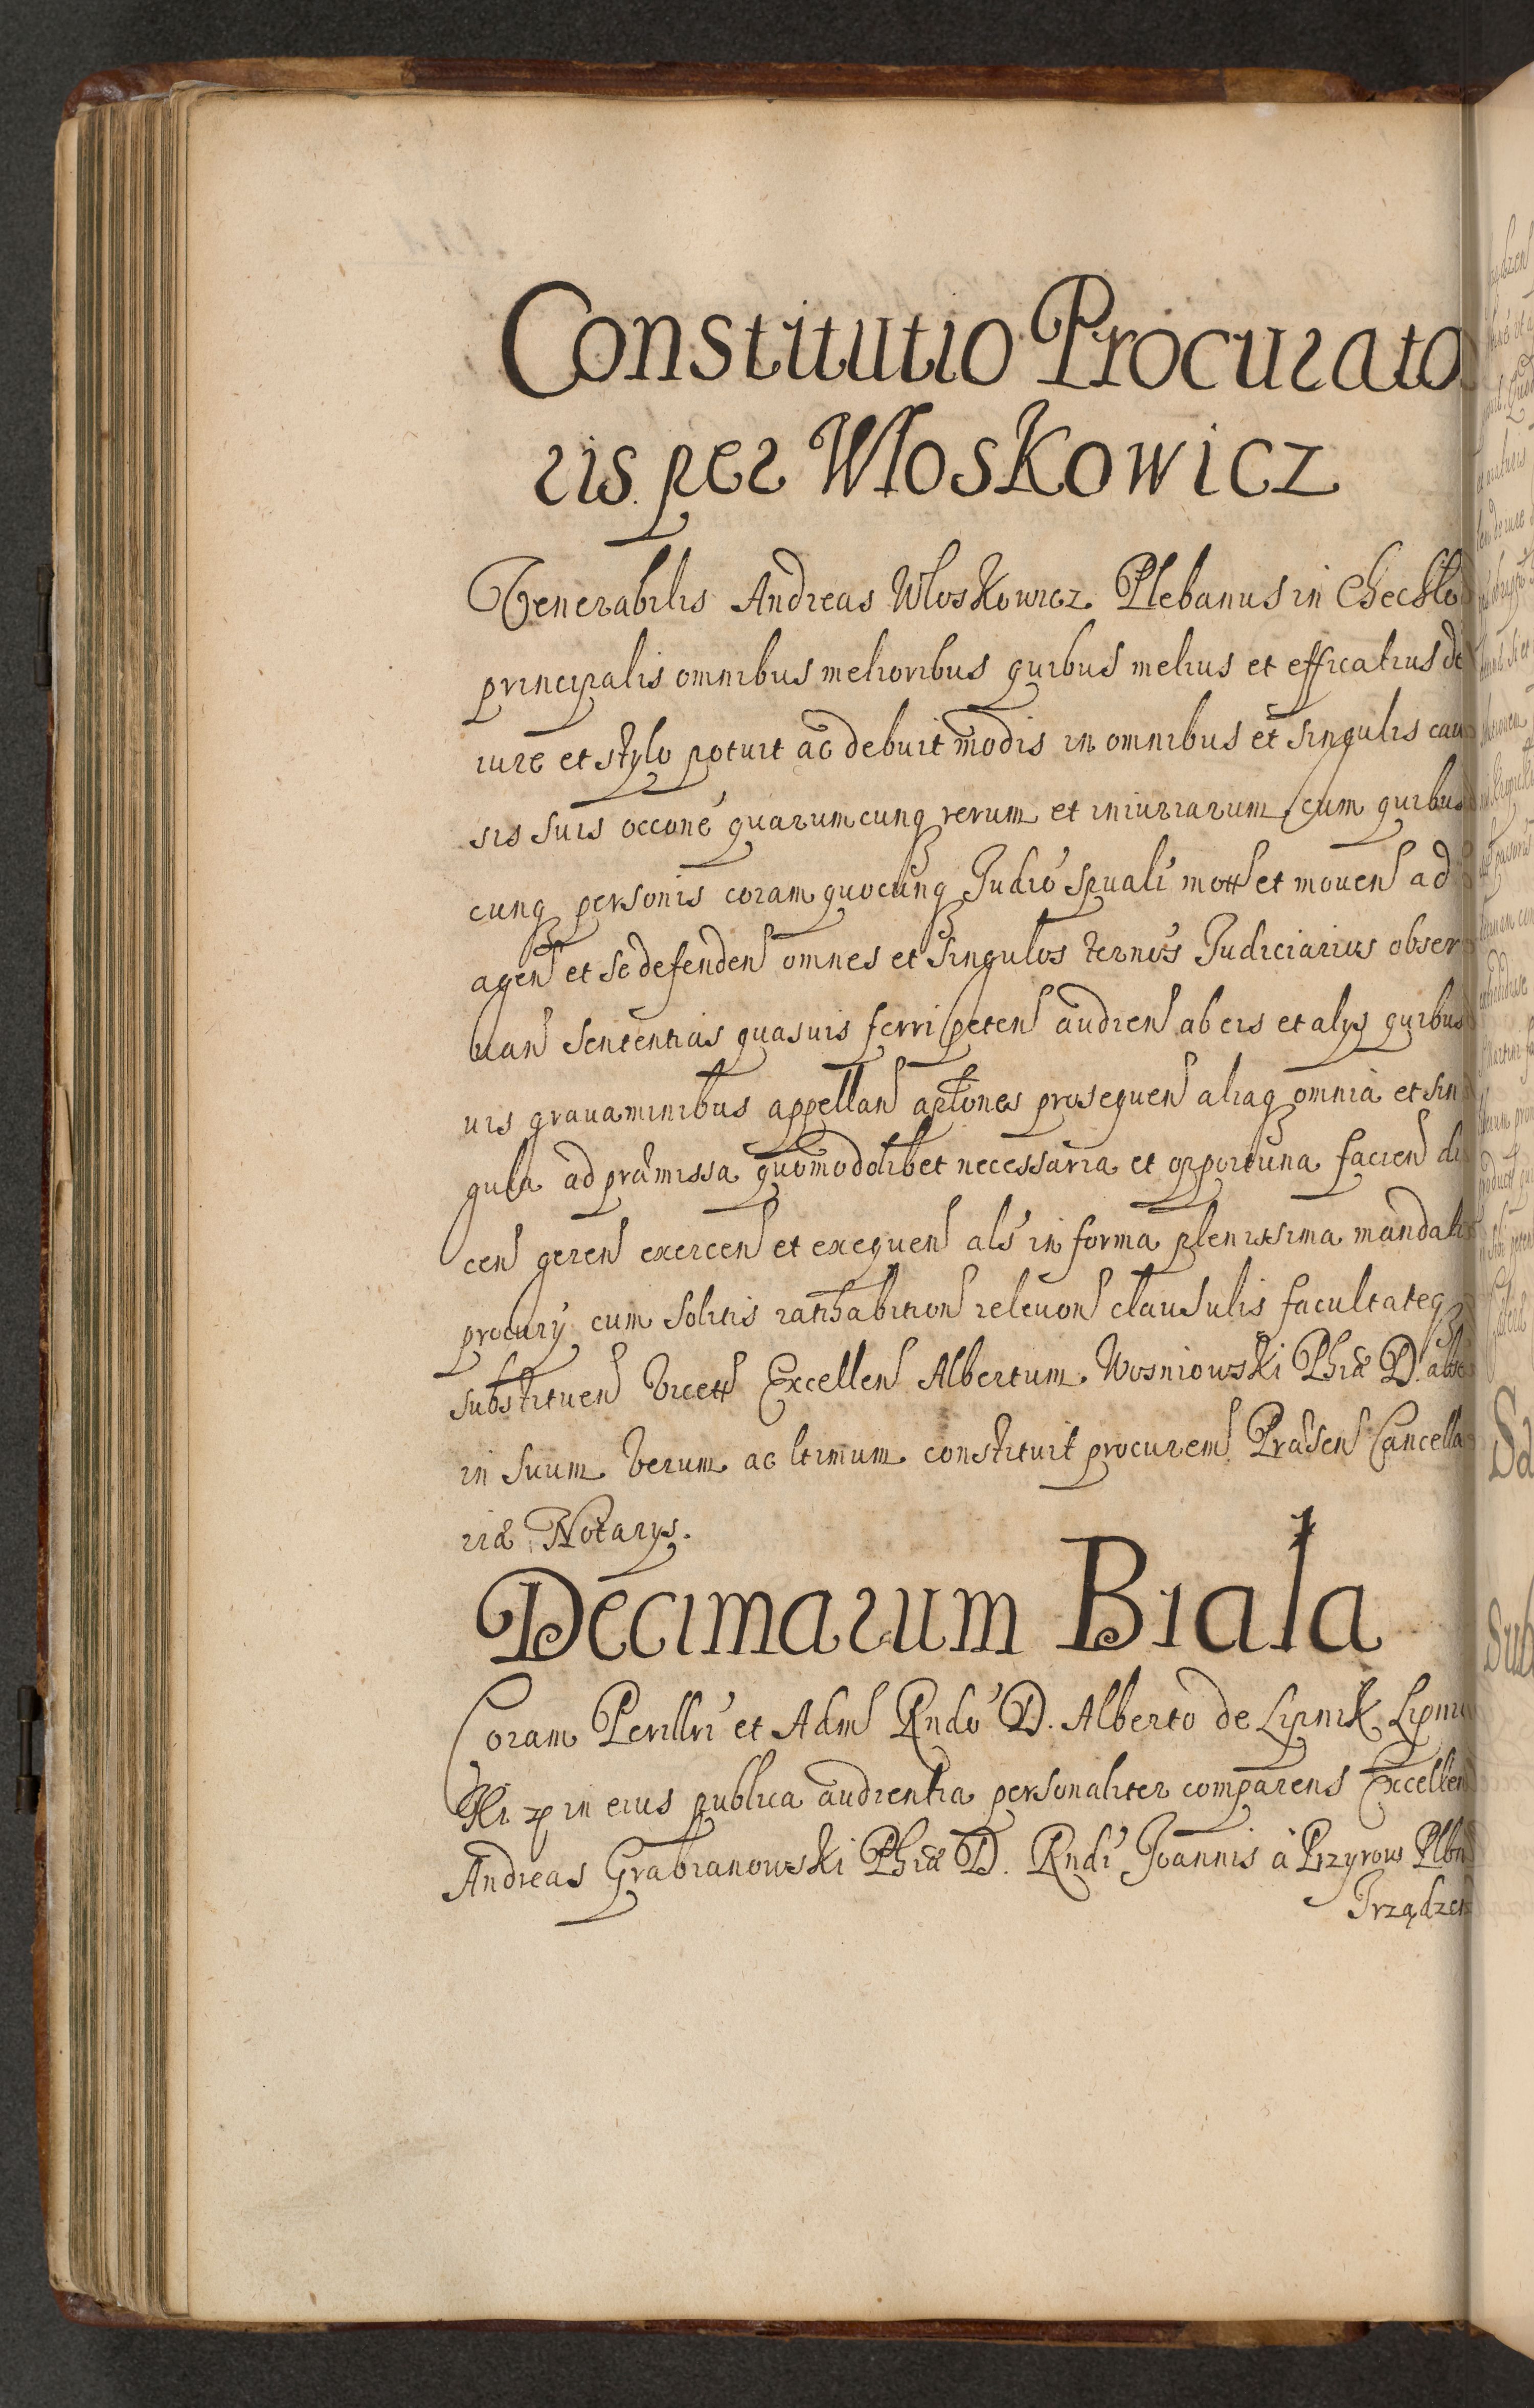 Constitutio Procurato
ris per Włoskowicz
Venerabilis Andreas Włoskowicz Plebanus in Checkło
principalis omnibus melioribus quibus melius et efficatius de
iure et stylo potuit ac debuit modis in omnibus et singulis cau
sis suis occóne quarumcunq rerum et iniuriarum cum quibus
cunq personis coram quocunq Judió Spuali mott et mouen ad
agen et se defenden omnes et singulos termós Judiciarios obser
uan Sententias quasuis ferri peten audien ab eis et alys quibus
uis grauaminibus appellan aplones prosequen aliaq omnia et sin
gula ad præmissa quomodolibet necessaria et opportuna facien di
cen geren exercen et exequen als in forma plenissima mandati
procury cum solitis ratihabition releuon clausulis facultateq
substituen Vicett Excellen Albertum Wosniowski Phiæ D.
in suum verum ac ltimum constituit procurem Præsen Cancella
riæ Notarys.
Decimarum Biała
Coram Perillri et Adm Rndo D. Alberto de Lipnik Lipni
ski in eius publica audientia personaliter comparens Excellen
Andreas Grabianowski Phiæ D. Rndi Joannis à Przyrow Plbn
Irządzen